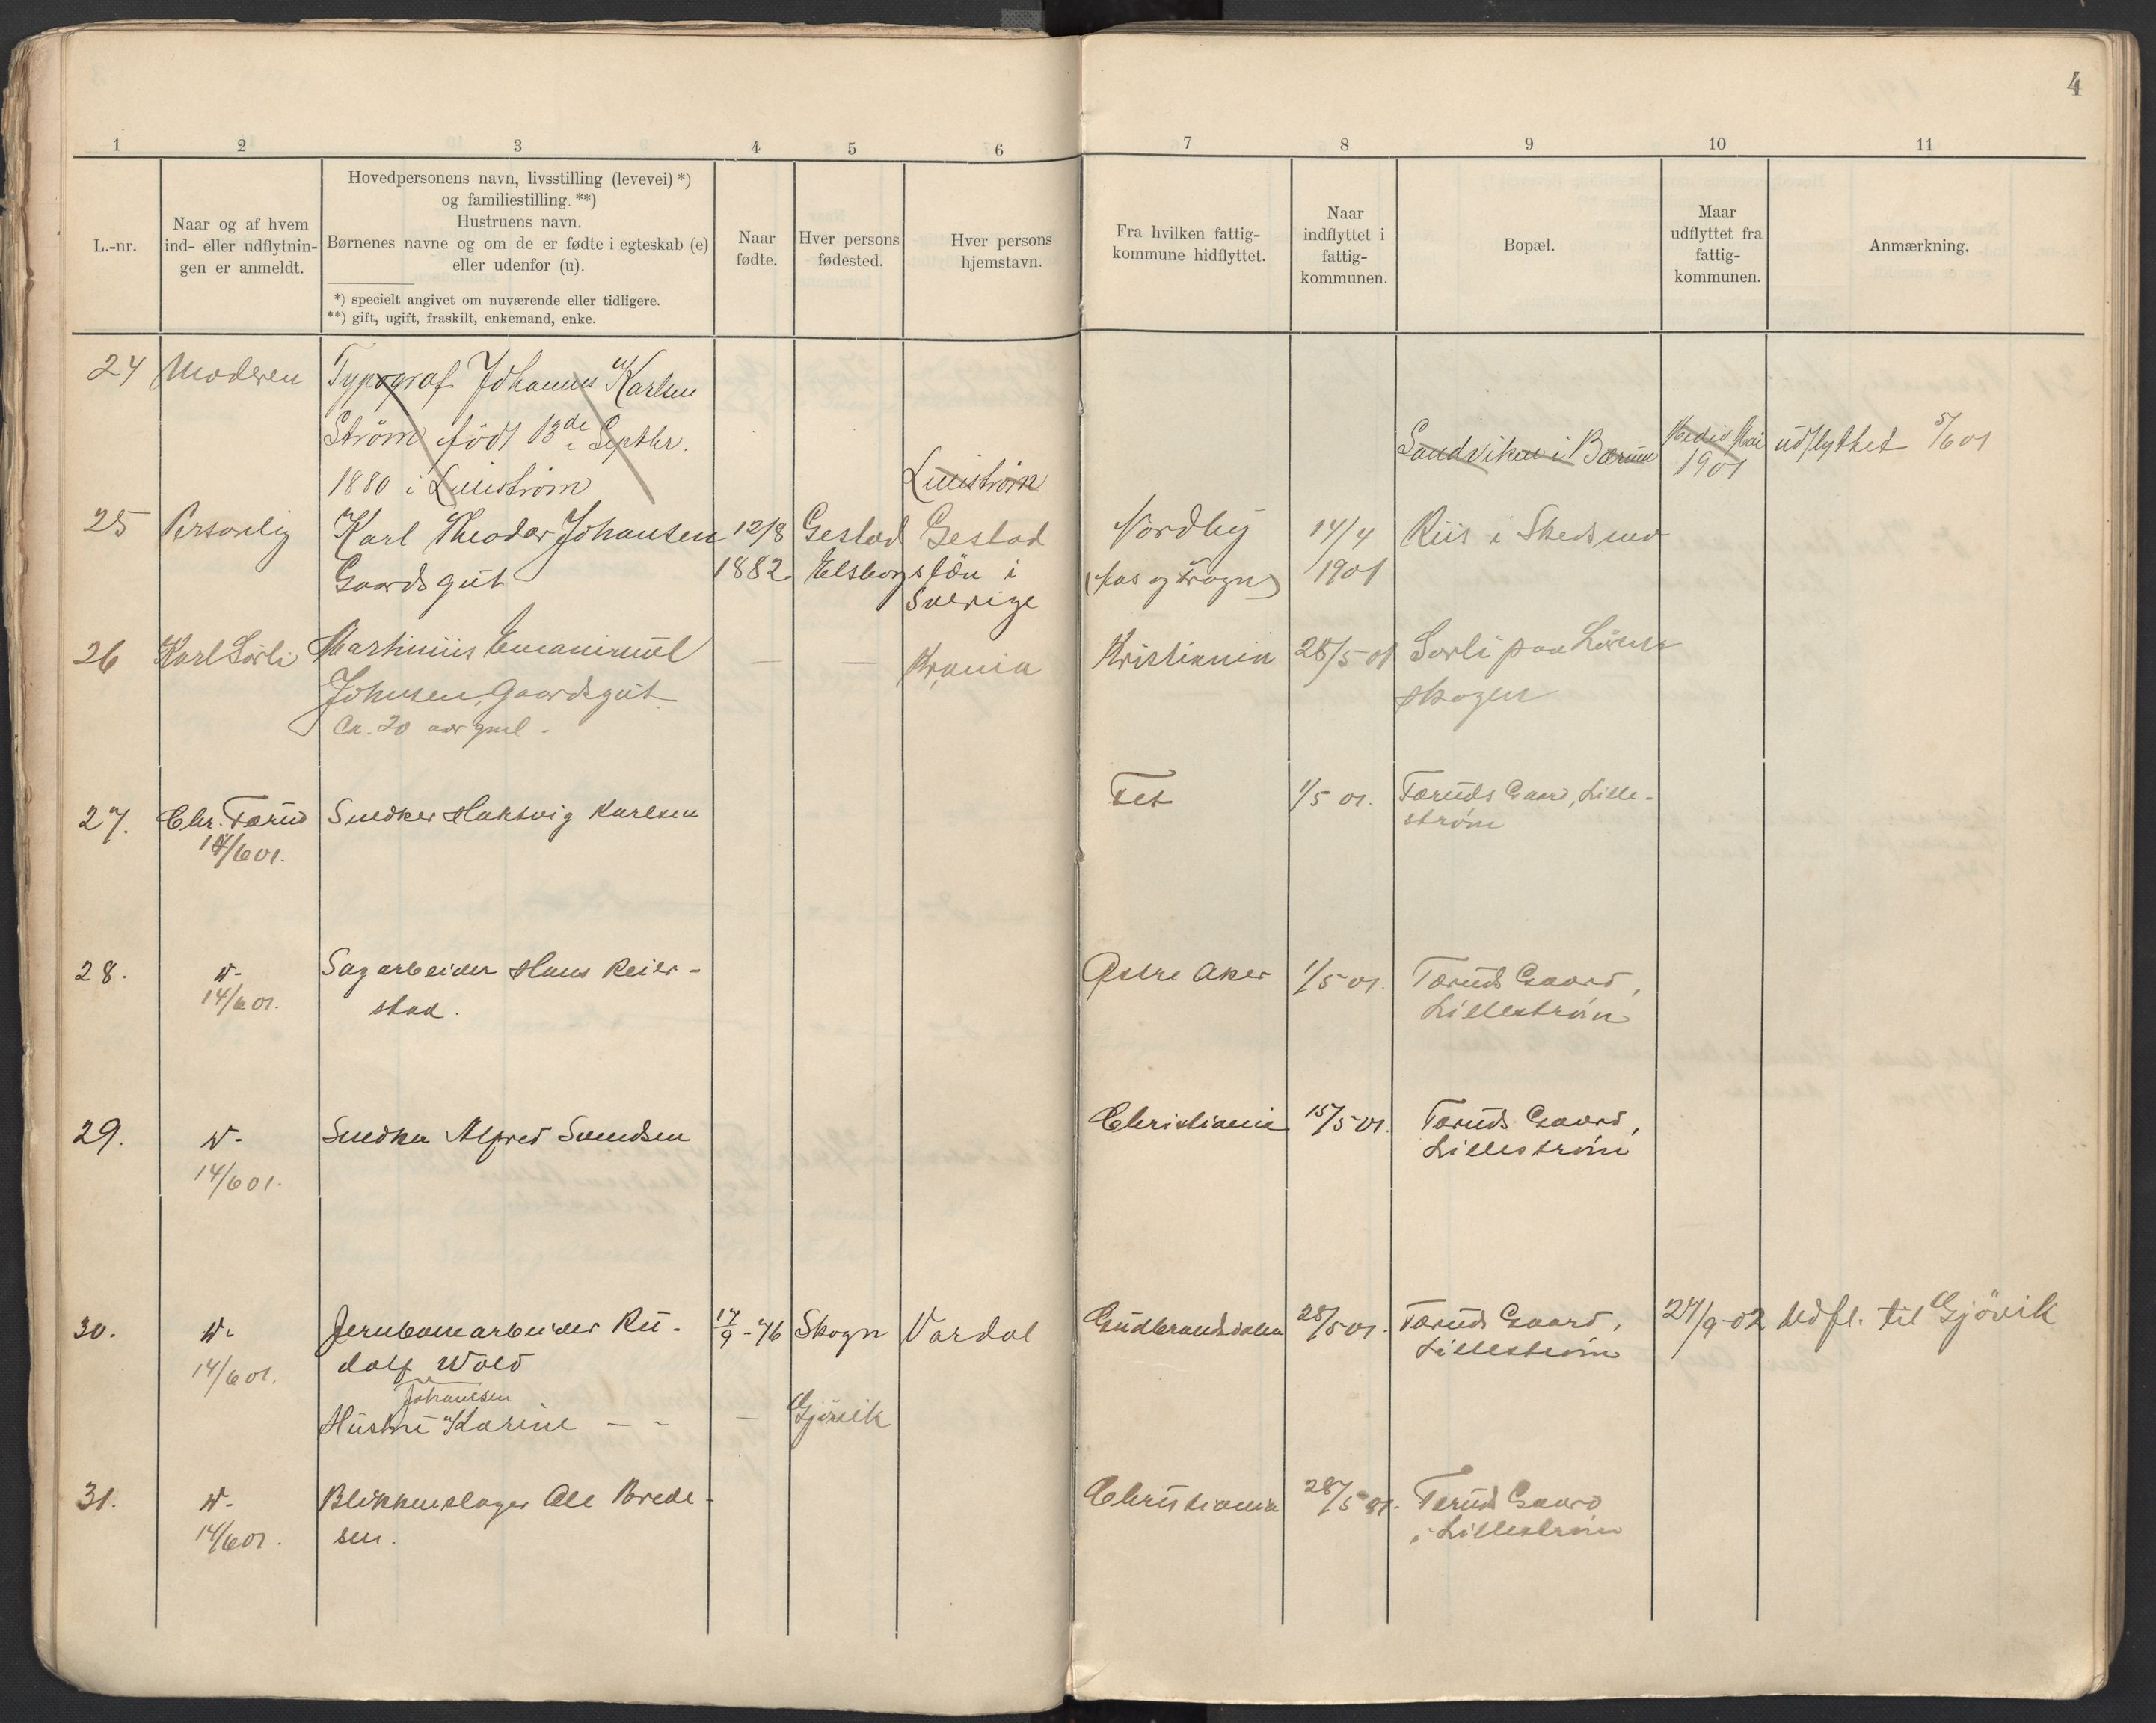 4
1 2 3 4 5 6 7 8 9 10 11
L.-nr.
Naar og af hvem
ind- eller udflytnin-
gen er anmeldt.
Hovedpersonens navn, livsstilling (levevei) *)
og familiestilling. **)
Hustruens navn.
Børnenes navne og om de er fødte i egteskab (e)
eller udenfor (u).
*) specielt angivet om nuværende eller tidligere.
**) gift, ugift, fraskilt, enkemand, enke.
Naar
fødte.
Hver persons
fødested.
Hver persons
hjemstavn.
Fra hvilken fattig-
kommune hidflyttet.
Naar
indflyttet i
fattig-
kommunen.
Bopæl.
Maar
udflyttet fra
fattig-
kommunen.
Anmærkning.
24 Moderen Typograf Johannes Karlsen
Strøm født 13de Septbr. Sandviken i Bærum Medio Mai udflyttet 5/6 01
1880 i Lillestrøm Lillestrøm 1901
25 Personlig Karl Theodor Johansen 12/8 Gestad Gestad Nordby 14/4 Riis i Skedsmo
Gaardsgut 1882 Elsborgs län i (Aas og Frogn) 1901
Sverige
26 Karl Sørli Martinius Emanuel — — Krania Kristiania 28/5 01 Sørli paa Lørens
Johnsen, Gaardsgut skogen
Ca. 20 aar gml.
27. Chr. Færud Snedker Haktvig Karlsen Fet 1/5 01. Færuds Gaard, Lille-
14/6 01. strøm
28. do- Sagarbeider Hans Reier- Østre Aker 1/5 01. Færuds Gaard,
14/6 01. stad. Lillestrøm
29. do- Snedker Alfred Svendsen Christiania 15/5 01. Færuds Gaard,
14/6 01. Lillestrøm
30. do- Jernbanearbeider Ru- 17/9-76 Skogn Vardal Gudbrandsdalen 28/5 01. Færuds Gaard, 24/9-02 Udfl. til Gjøvik
14/6 01. dolf Wold Lillestrøm
Johansen
Hustru Karine — - — Gjøvik
31. do- Blikkenslager Ole Brede- Christiania 28/5 01. Færuds Gaard
14/6 01. sen. i Lillestrøm